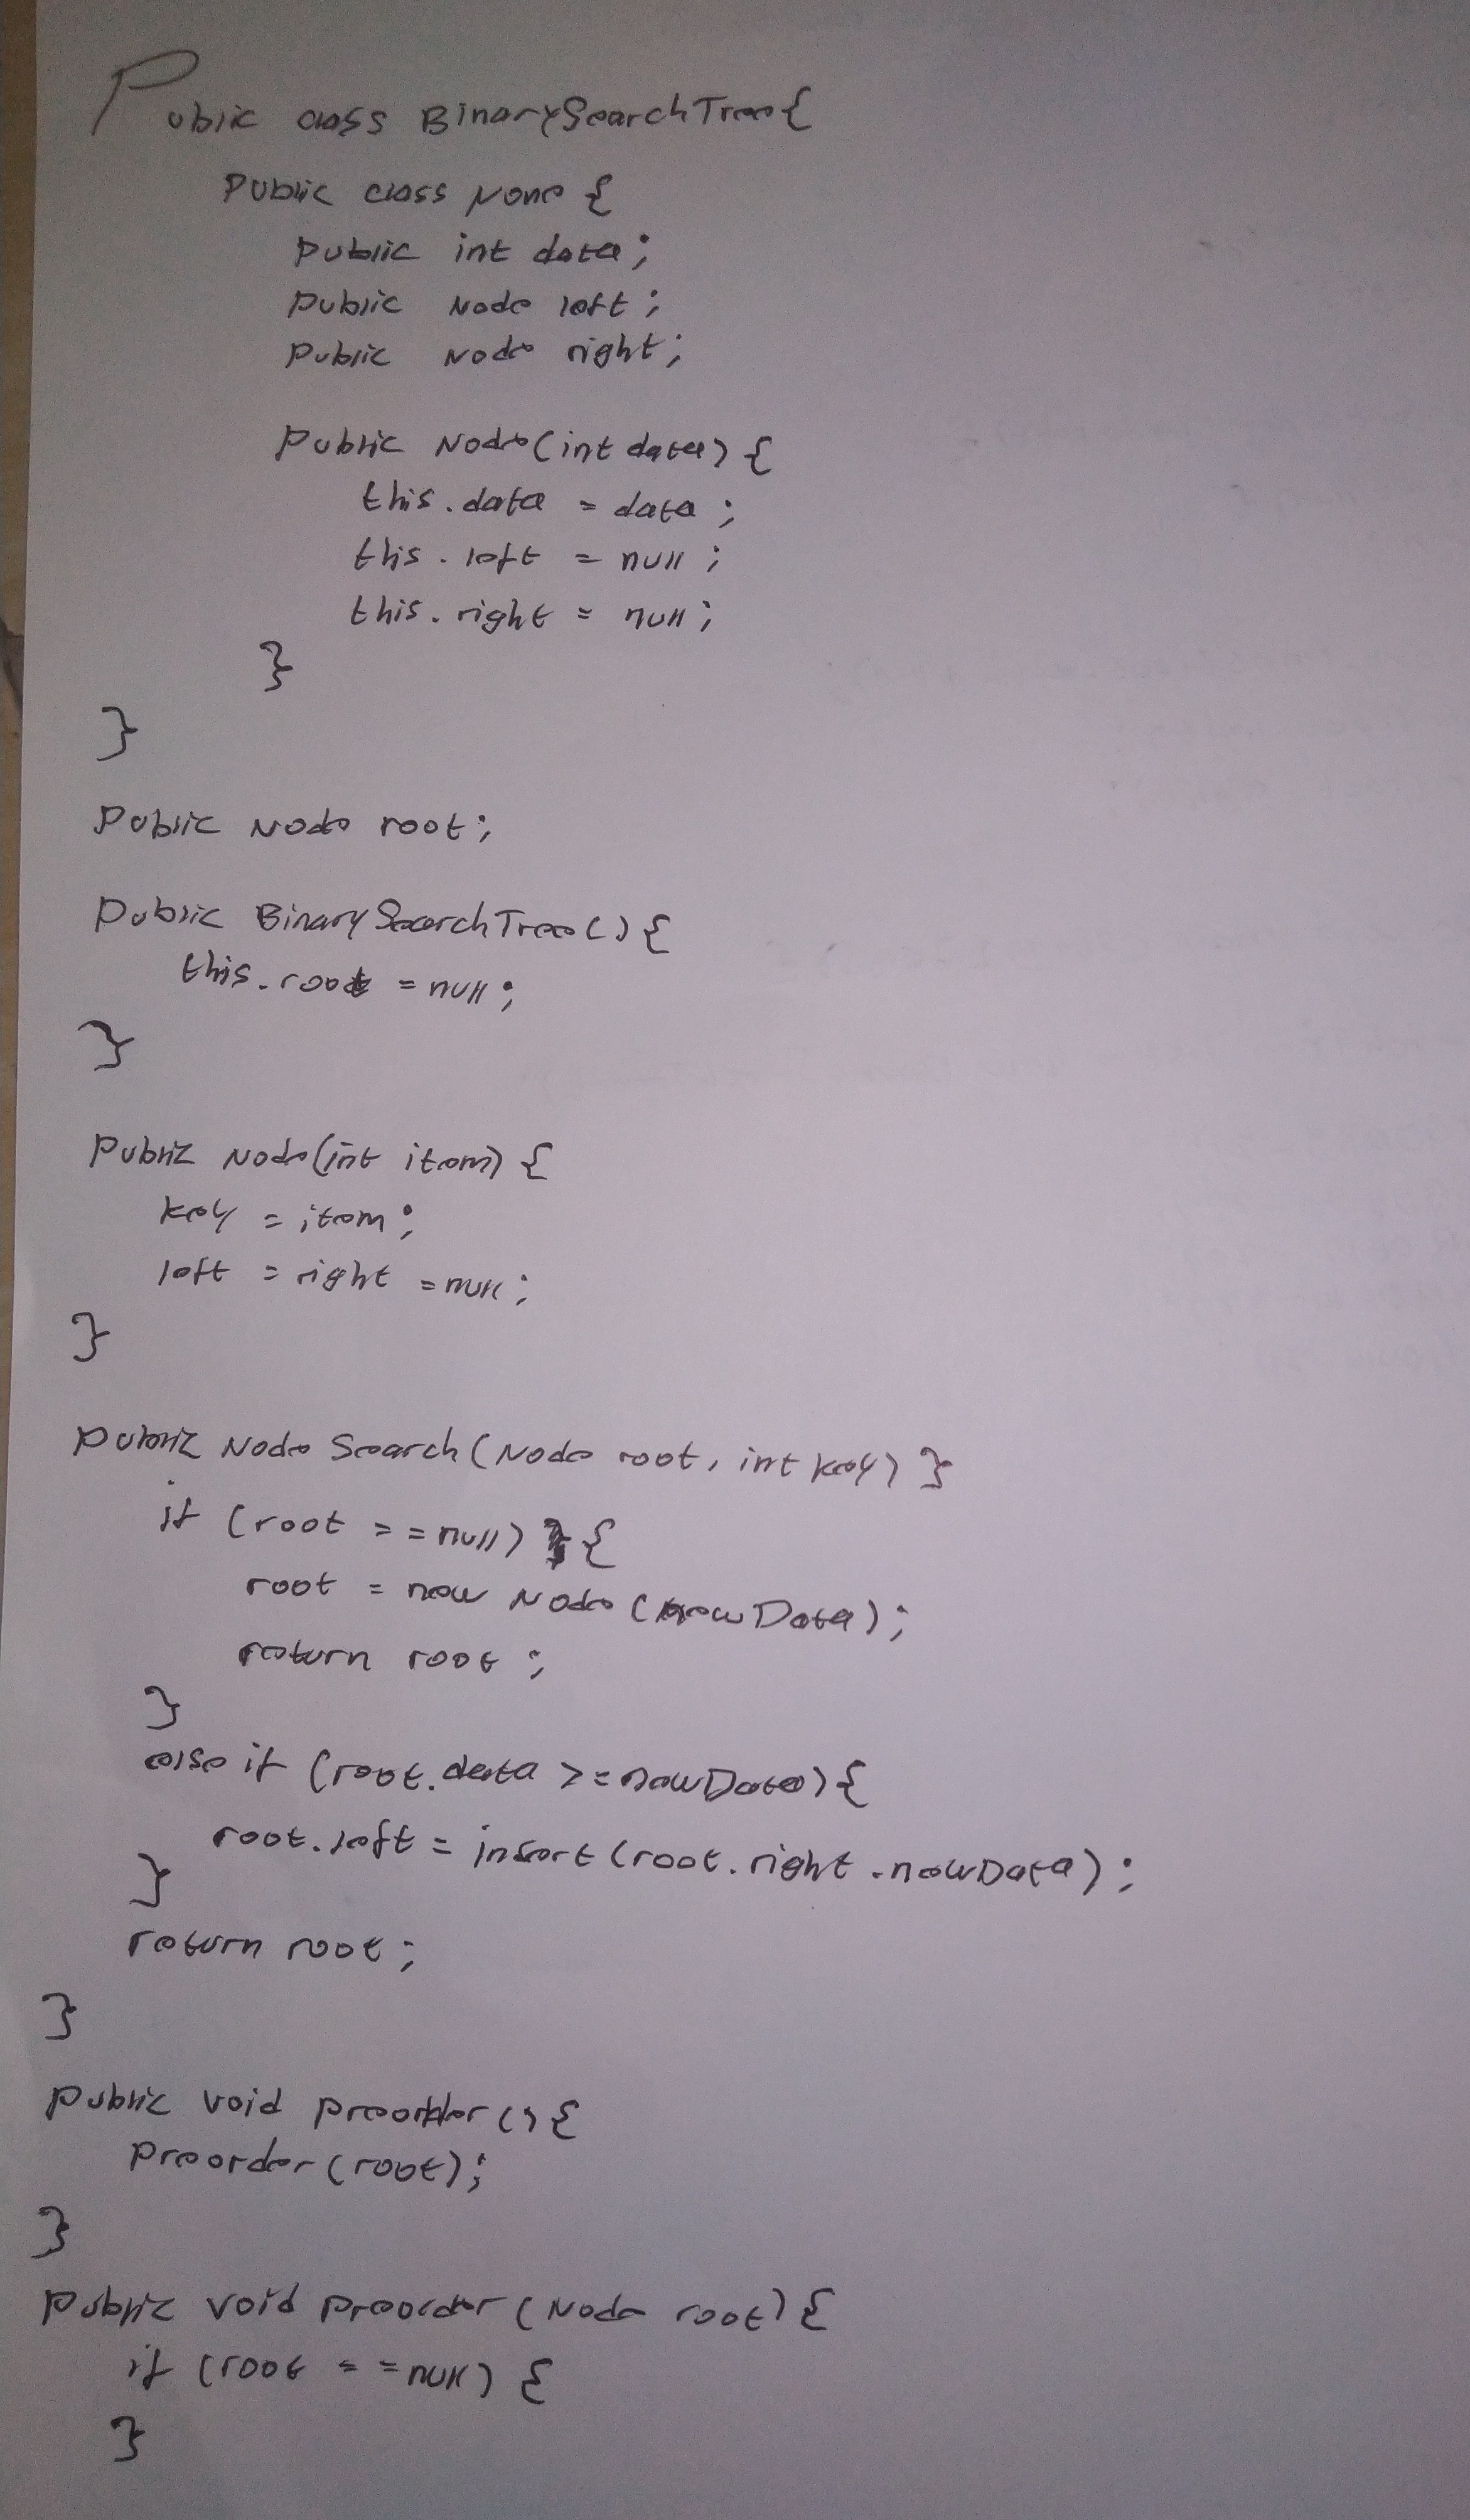 Public class BinarySearchTree{
public class None {
public int data;
public Node left;
public Node right;
public Node(int data) {
this.data = data;
this.left = null;
this.right = null;
}
}
public Node root;
public BinarySearchTree() {
this.root = null;
}
public Node(int item) {
key = item;
left = right = null;
}
public Node Search(Node root, int key) }
if (root == null) {
root = new Node (newData);
return root;
}
else if (root.data >= newData) {
root.left = insert(root.right.newData);
}
return root;
}
public void preorder() {
preorder(root);
}
public void preorder(Node root) {
if (root == null) {
}